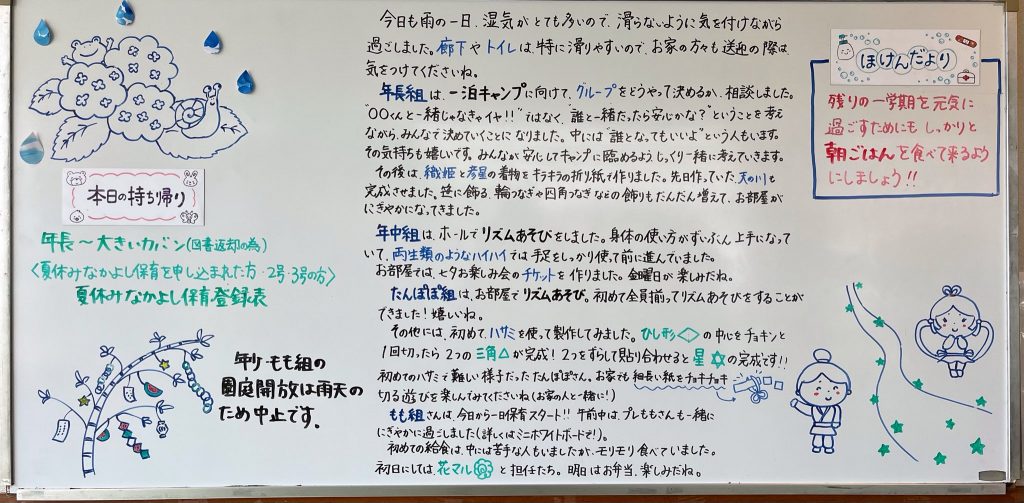 本日の持ち帰り
年長〜大きいカバン(図書返却の為)
〈夏休みなかよし保育を申し込まれた方・2号・3号の方〉
夏休みなかよし保育登録表
年少・もも組の
園庭開放は雨天の
ため中止です。
今日も雨の一日、湿気がとても多いので、滑らないように気を付けながら
過ごしました。廊下やトイレは、特に滑りやすいので、お家の方々も送迎の際は
気をつけてくださいね。
年長組は、一泊キャンプに向けて、グループをどうやって決めるか、相談しました。
"〇〇くんと一緒じゃなきゃイヤ!!"ではなく、"誰と一緒だったら安心かな?"ということを考え
ながら、みんなで決めていくことになりました。中には"誰となってもいいよ"という人もいます。
その気持ちも嬉しいです。みんなが安心してキャンプに臨めるよう、じっくり一緒に考えていきます。
その後は、織姫と彦星の着物をキラキラの折り紙で作りました。先日作っていた天の川も
完成させました。笹に飾る、輪つなぎや四角つなぎなどの飾りもだんだん増えて、お部屋が
にぎやかになってきました。
年中組は、ホールでリズムあそびをしました。身体の使い方がずいぶん上手になって
いて、両生類のようなハイハイでは手足をしっかり使って前に進んでいました。
お部屋では、七夕お楽しみ会のチケットを作りました。金曜日が楽しみだね。
たんぽぽ組は、お部屋でリズムあそび。初めて全員揃ってリズムあそびをすることが
できました!嬉しいね。
その他には、初めて、ハサミを使って製作してみました。ひし形◇の中心をチョキンと
1回切ったら2つの三角△が完成!2つをずらして貼り合わせると星✡の完成です!!
初めてのハサミで難しい様子だったたんぽぽさん。お家でも細長い紙をチョキチョキ
切る遊びを楽しんでみてくださいね(お家の人と一緒に!)
もも組さんは、今日から一日保育スタート!!午前中は、プレももさんも一緒に
にぎやかに過ごしました(詳しくはミニホワイトボードで!)。
初めての給食は、中には苦手な人もいましたが、モリモリ食べていました。
初日にしては、花マルと担任たち。明日はお弁当、楽しみだね。
ほけんだより
残りの一学期を元気に
過ごすためにもしっかりと
朝ごはんを食べて来るよう
にしましょう!!